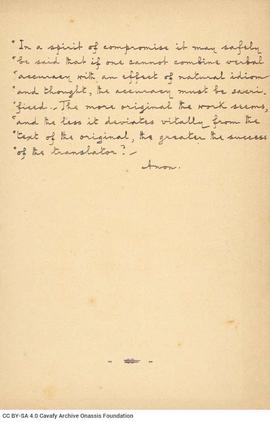 "In a spirit of compromise it may safely
"be said that if one cannot combine verbal
"accuracy with an effect of natural idiom
"and thought, the accuracy must be sacri-
"ficed. - The more original the work seems,
"and the less it deviates vitally from the
"text of the original, the greater the success
"of the translator". -
Anon.
CC BY-SA 4.0 Cavafy Archive Onassis Foundation